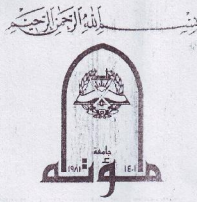 بسم الله الرحمن الرحيم
جامعة
مؤتة
١٩٨١ ١٤٠١